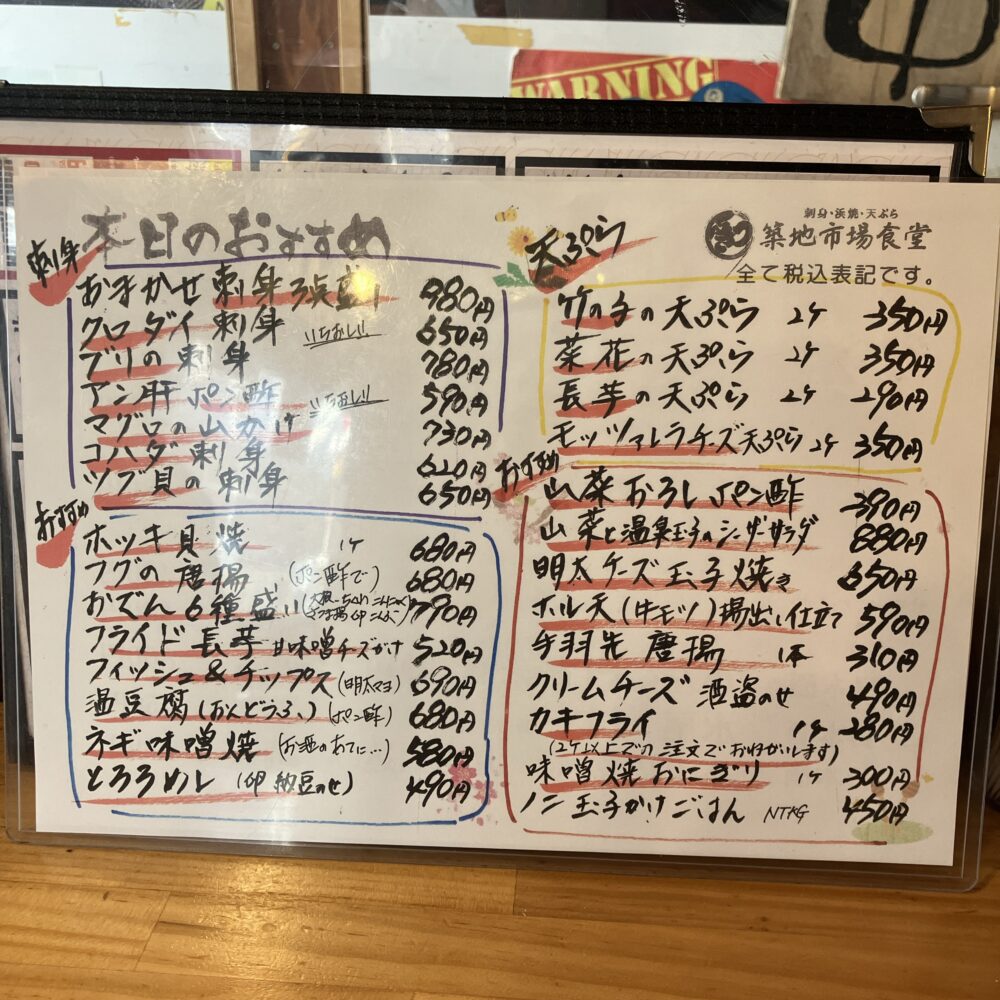 WARNING
本日のおすすめ
刺身
おまかせ刺身3点盛り 980円
クロダイ刺身 いちおし!! 650円
ブリの刺身 780円
アン肝ポン酢 いちおし!! 590円
マグロの山かけ 730円
コハダ刺身 620円
ツブ貝の刺身 650円
おすすめ
ホッキ貝焼 1ケ 680円
フグの唐揚 (ポン酢で) 680円
おでん6種盛り 790円
フライド長芋 甘味噌チーズがけ 520円
フィッシュ&チップス (明太マヨ) 690円
温豆腐(おんどうふ) (ポン酢) 680円
ネギ味噌焼 (お酒のあてに…) 580円
とろろめし (卵 納豆のせ) 490円
刺身・浜焼・天ぷら
築地市場食堂
全て税込表記です。
天ぷら
竹の子の天ぷら 2ケ 350円
菜花の天ぷら 2ケ 350円
長芋の天ぷら 2ケ 290円
モッツァレラチーズ天ぷら 2ケ 350円
おすすめ
山菜おろしポン酢 390円
山菜と温泉玉子のシーザーサラダ 880円
明太チーズ玉子焼き 650円
ホル天(牛モツ)揚出し仕立て 590円
手羽先唐揚 1本 310円
クリームチーズ酒盗のせ 490円
カキフライ 1ケ 280円
(2ケ以上でのご注文でおねがいします)
味噌焼おにぎり 1ケ 300円
ノニ玉子かけごはん NTKG 450円